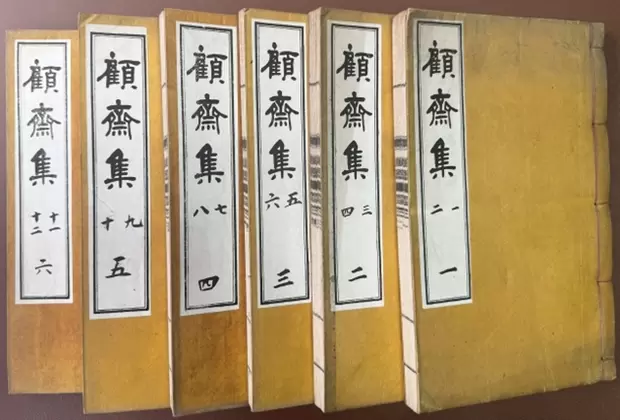 顧齋集
一
二
一
顧齋集
三
四
二
顧齋集
五
六
三
顧齋集
七
八
四
顧齋集
九
十
五
顧齋集
十一
十二
六